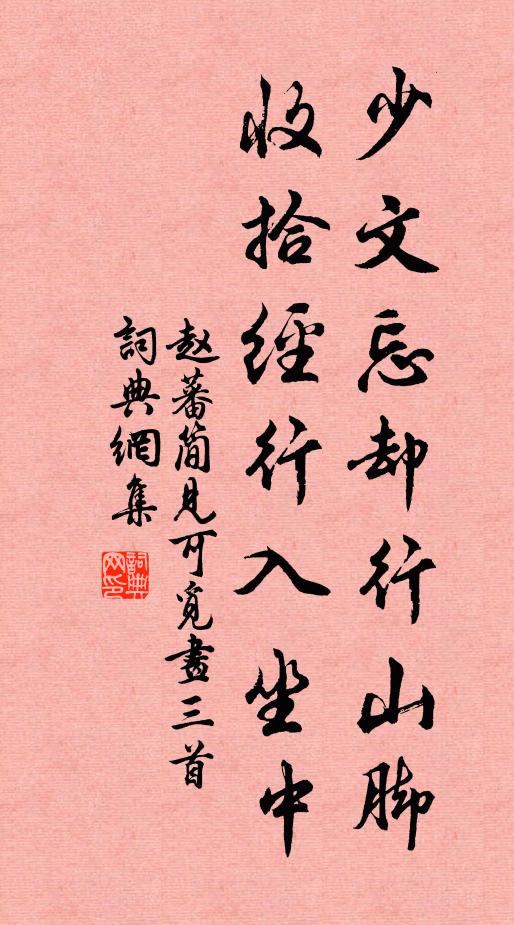 少文忘却行山脚
收拾經行入坐中
赵蕃簡見可覓畫三首
詞典網集
詞典網印